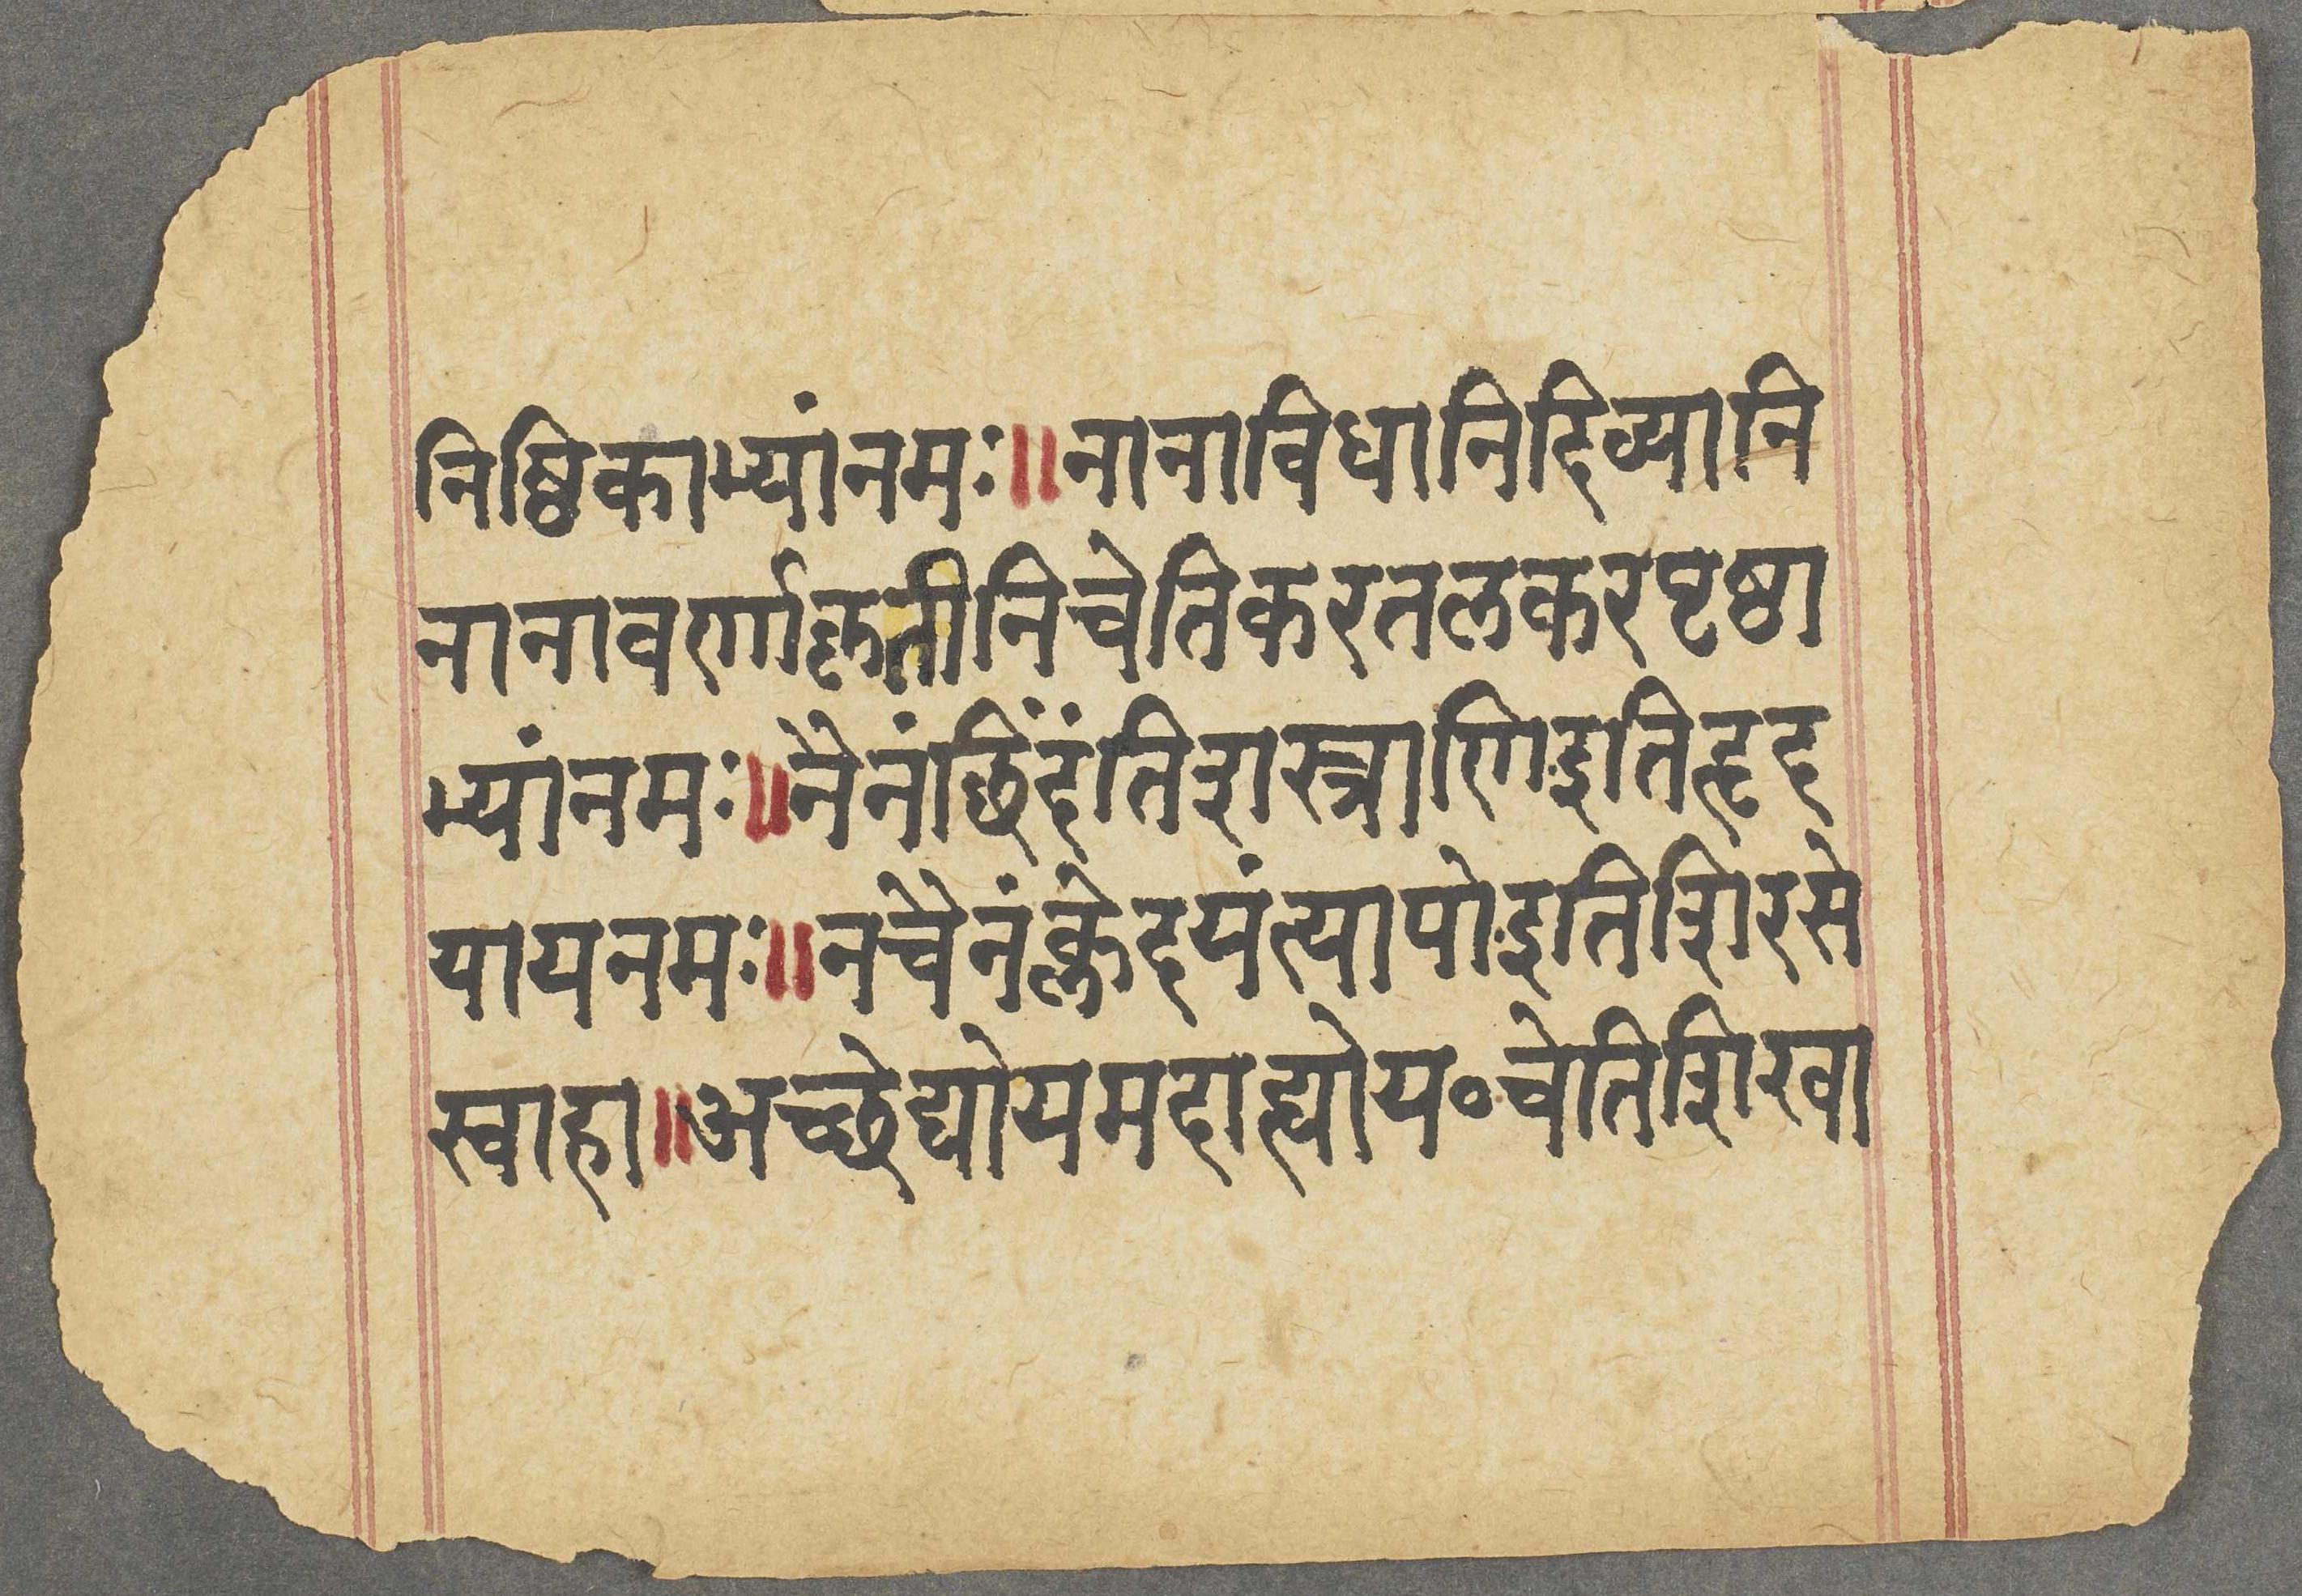 निष्ठिकाभ्यांनमः॥नानाविधानिदिव्यानि
नानावर्णाकृतीनिचेतिकरतलकरपृष्ठा
भ्यांनमः॥नैनंछिंदंतिशस्त्राणिइतिहृद
यायनमः॥नचैनंक्लेदयंत्यापोइतिशिरसे
स्वाहा॥अच्छेद्योयमदाह्योय॰चेतिशिखा